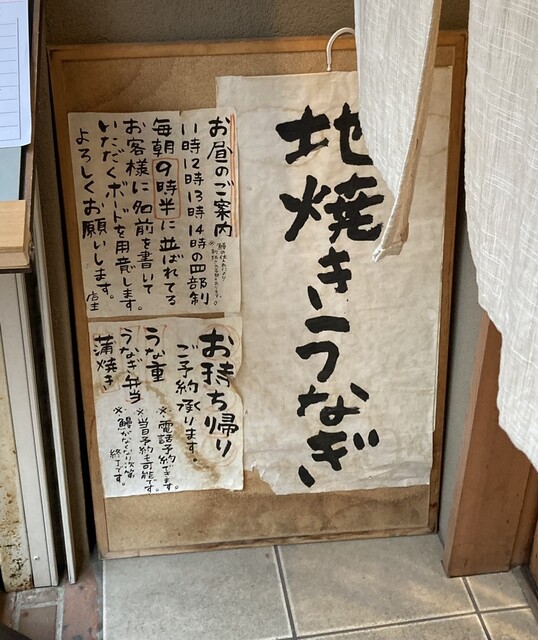 地焼きうなぎ
お昼のご案内
11時12時13時14時の四部制
毎朝9時半に並ばれてる
お客様に名前を書いて
いただくボードを用意します。
よろしくお願いします。
店主
お持ち帰り
ご予約承ります。
うな重
うなぎ弁当
蒲焼き
※電話予約できます。
※当日予約も可能です。
※鰻がなくなり次第
終了です。